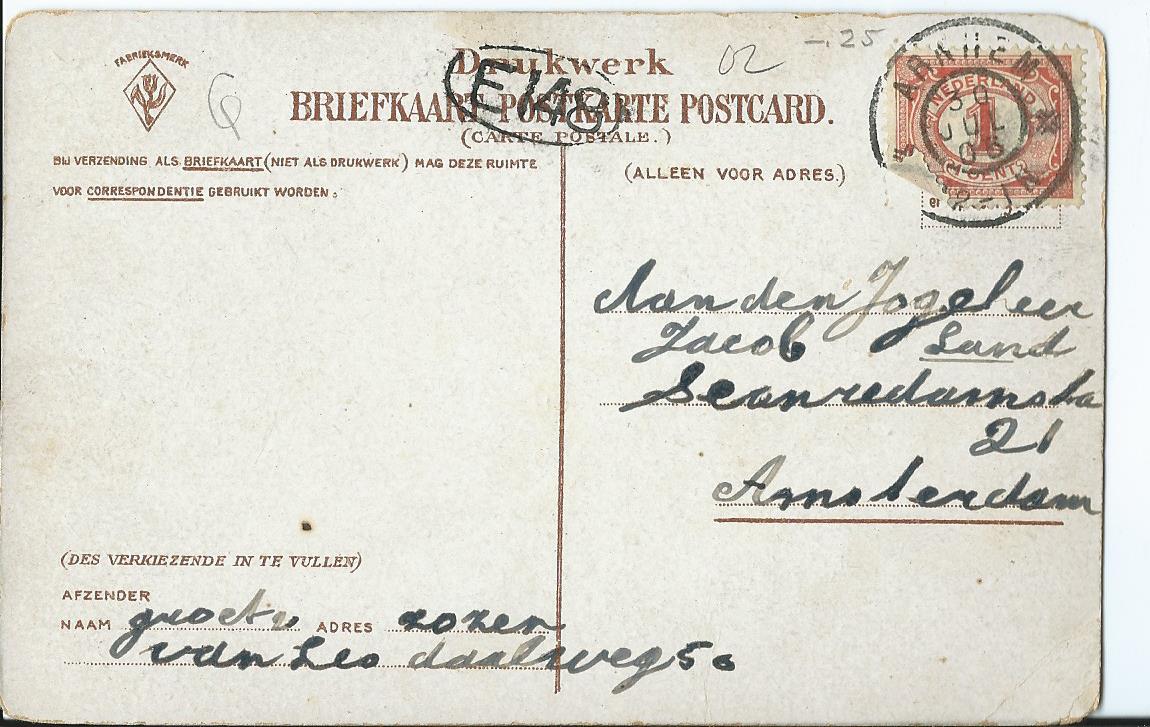 FABRIEKSMERK
Drukwerk
02
-.25
E148
BRIEFKAART POSTKARTE POSTCARD.
(CARTE POSTALE.)
ARNHEM
30
JUL
NEDERLAND
1
CENT
BIJ VERZENDING ALS BRIEFKAART (NIET ALS DRUKWERK) MAG DEZE RUIMTE
VOOR CORRESPONDENTIE GEBRUIKT WORDEN.
(ALLEEN VOOR ADRES.)
Aan den Jogeheer
Jacob Sand
21
Amsterdam
(DES VERKIEZENDE IN TE VULLEN)
AFZENDER
NAAM groeten ADRES zozen
van Leo daalseweg 50